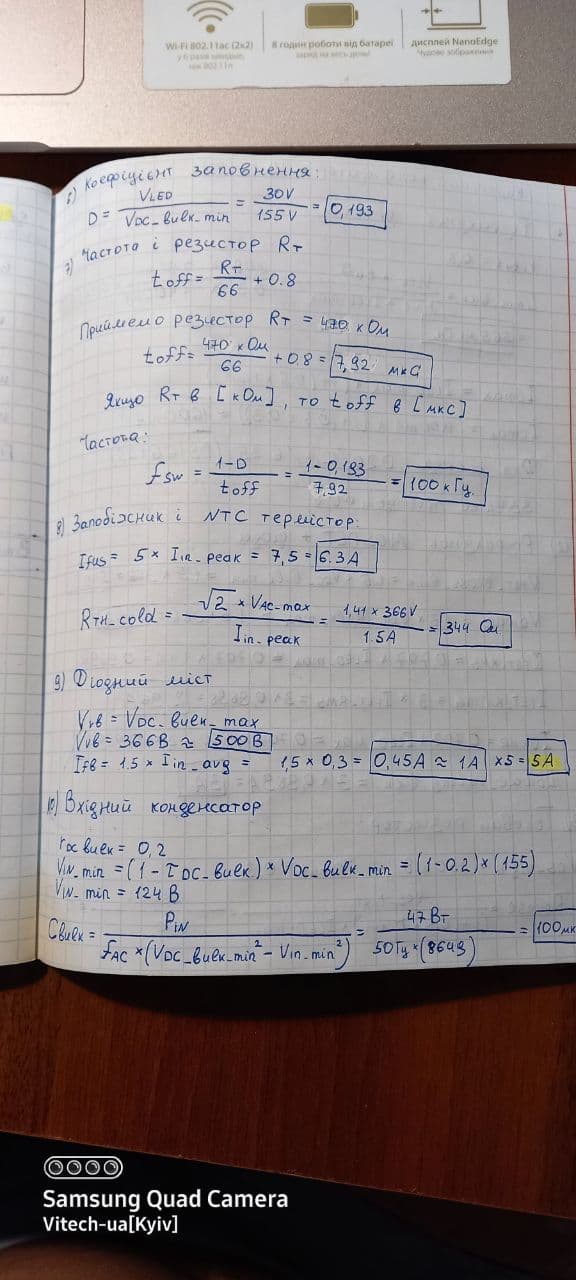 Wi-Fi 802.11ac (2x2)
8 годин роботи від батареї
заряд на весь день
дисплей NanoEdge
Чудове зображення
6) Коефіцієнт заповнення:
D = VLED / VDC_bulk_min = 30V / 155V = 0,193
7) Частота і резистор RT
toff = RT / 66 + 0.8
Приймемо резистор RT = 470 кОм
toff = 470 кОм / 66 + 0.8 = 7,92 мкС
Якщо RT в [кОм], то toff в [мкс]
Частота:
fsw = 1-D / toff = 1-0,193 / 7,92 = 100 кГц
8) Запобіжник і NTC термістор:
Ifus = 5 × Iin_peak = 7,5 = 6.3A
RTH_cold = √2 × VAC_max / Iin_peak = 1,41 × 366V / 1.5A = 344 Ом
9) Діодний міст
Vvb = VDC_bulk_max
Vvb = 366В ≈ 500В
IFB = 1.5 × Iin_avg = 1,5 × 0,3 = 0,45A ≈ 1A ×5 = 5A
10) Вхідний конденсатор
rDC bulk = 0,2
VIN_min = (1 - rDC_bulk) × VDC_bulk_min = (1-0.2)×(155)
VIN_min = 124 В
Cbulk = PIN / fAC × (VDC_bulk_min² - Vin_min²) = 47Вт / 50Гц × (8649) = 100мк
Samsung Quad Camera
Vitech-ua[Kyiv]